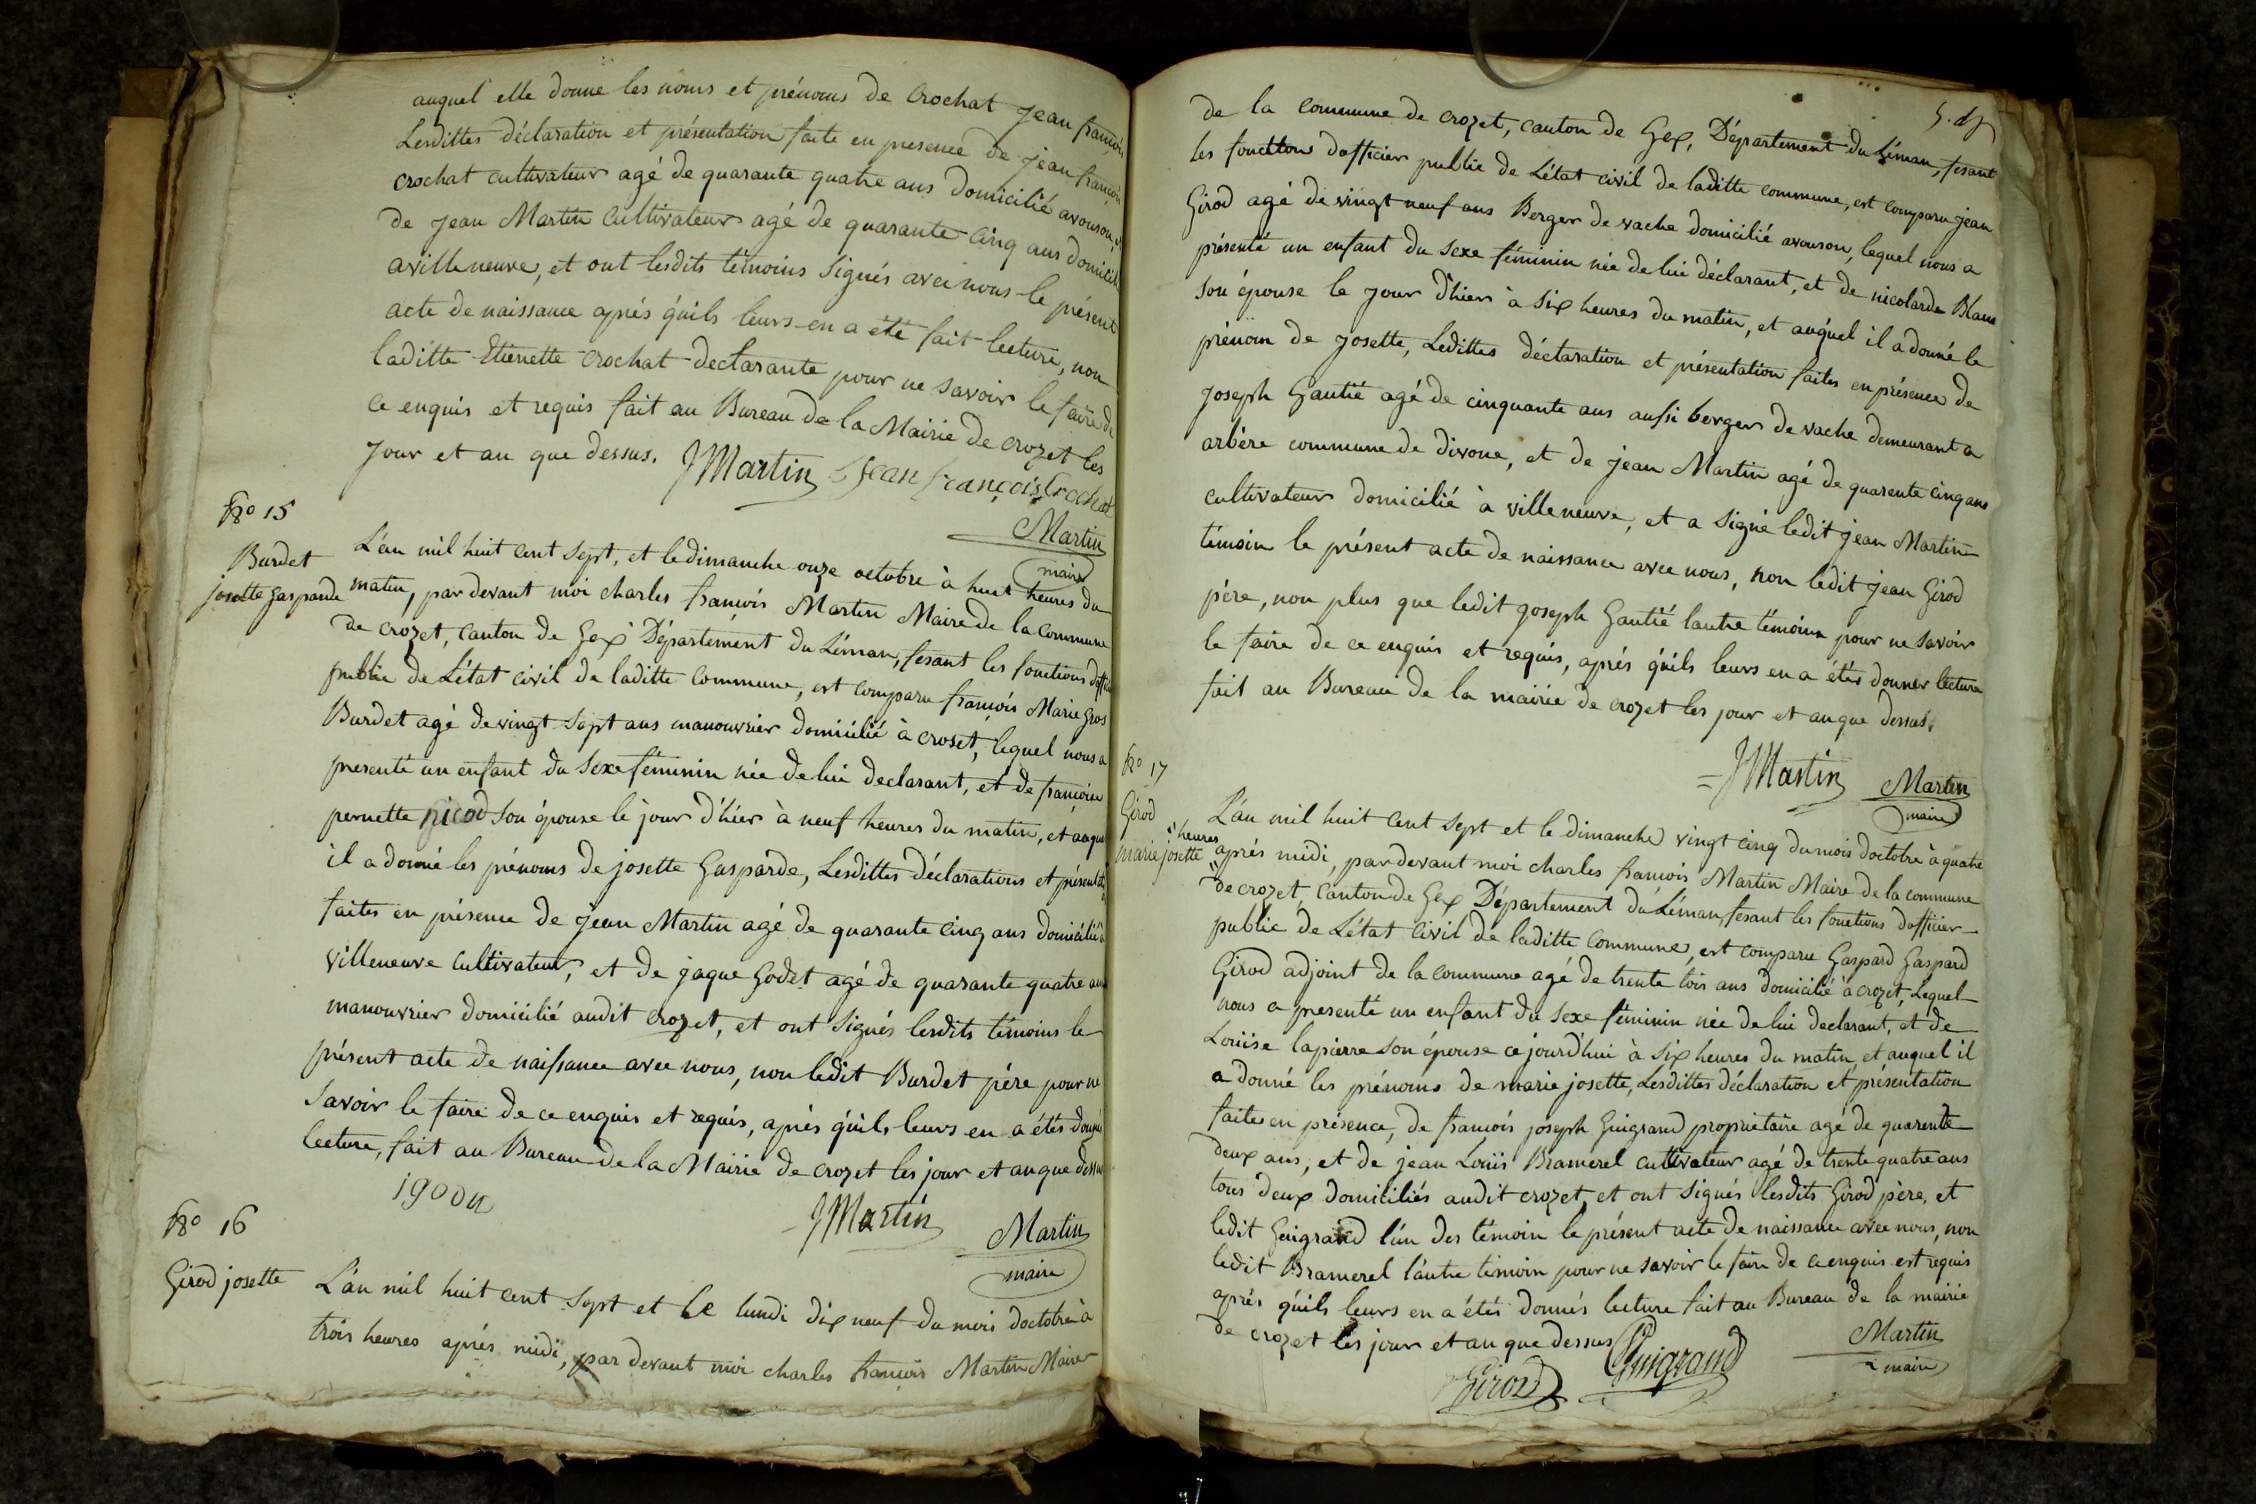 auquel elle donne les noms et prénoms de Crochat Jean françois
Lesdittes déclaration et présentation faite en presence de jean françois
crochat cultivateur agé de quarante quatre ans Domicilié avouson, et
de jean Martin cultivateur agé de quarante cinq ans domicilié
avilleneuve, et ont lesdits témoins signés avec nous le présent
acte de naissance aprés qu'ils leurs en a été fait lecture, non
laditte Etienette crochat declarante pour ne savoir le faire de
ce enquis et requis fait au Bureau de la Mairie de crozet les
jour et an que dessus. JMartin Jean françois Crochat
Martin
maire
No 15
Burdet
josette gasparde
L'an mil huit cent sept, et le dimanche onze octobre à huit heures du
matin, par devant moi charles francois Martin Maire de la commune
de crozet, canton de Gex Département du Léman, fesant les fonctions d'officier
public de L'état civil de laditte commune, est comparu françois Marie gros
Burdet agé de vingt sept ans manouvrier domicilié à croset, lequel nous a
presenté un enfant du Sexe féminin née de lui declarant, et de françoise
pernette nicod son épouse le jour d'hier à neuf heures du matin, et auquel
il a donné les prénoms de josette Gasparde, Lesdittes déclarations et présentation
faites en présence de jean Martin agé de quarante cinq ans domicilié à
villeneuve cultivateur, et de jaque Godet agé de quarante quatre ans
manouvrier domicilié audit crozet, et ont signés lesdits témoins le
présent acte de naissance avec nous, non ledit Burdet pére pour ne
savoir le faire de ce enquis et requis, aprés qu'ils leurs en a étés donnés
lecture, fait au Bureau de la Mairie de crozet les jour et an que dessus
JMartin
Martin
maire
No 16
Girod josette
L'an mil huit cent sept et le lundi dix neuf du mois doctobre à
trois heures aprés midi, par devant moi charles francois Martin Maire
de la commune de crozet, canton de Gex, Département du Léman, fesant
les fonctions d'officier public de L'état civil de laditte commune, est comparu jean
Girod agé de vingt neuf ans Berger de vache domicilié avouson, lequel nous a
présenté un enfant du sexe féminin née de lui déclarant, et de nicolarde Blanc
son épouse le jour d'hier à six heures du matin, et auquel il a donné le
prénom de josette, Ledittes déclaration et présentation faites en présence de
joseph Gautié agé de cinquante ans aussi berger de vache demeurant a
arbére commune de divone, et de jean Martin agé de quarente cinq ans
cultivateur domicilié à villeneuve, et a signé ledit jean Martin
témoin le présent acte de naissance avec nous, non ledit jean Girod
pére, non plus que ledit joseph Gautié lautre témoin pour ne savoir
le faire de ce enquis et requis, aprés qu'ils leurs en a étés donner lecture
fait au Bureau de la mairie de crozet les jour et an que dessus.
JMartin
Martin
maire
No 17
Girod
marie josette
L'an mil huit cent sept et le dimanche vingt cinq du mois doctobre à quatre
heures
aprés midi, par devant moi charles francois Martin Maire de la commune
de crozet, canton de Gex Département du Léman, fesant les fonctions d'officier
public de L'état civil de laditte commune, est comparu Gaspard Gaspard
Girod adjoint de la commune agé de trente trois ans domicilié à crozet, Lequel
nous a presenté un enfant du sexe féminin née de lui declarant, et de
Louise lapierre son épouse ce jourd'hui à six heures du matin, et auquel il
a donné les prénoms de marie josette, Lesdittes déclaration et présentation
faites en présence, de francois joseph Guigrand propriétaire agé de quarente
deux ans, et de jean Louis Bramerel cultivateur agé de trente quatre ans
tous deux domiciliés audit crozet, et ont signés lesdits Girod père, et
ledit Guigrand l'un des témoin le présent acte de naissance avec nous, non
ledit Bramerel l'autre témoin pour ne savoir le faire de ce enquis est requis
aprés qu'ils leurs en a étés donnés lecture fait au Bureau de la mairie
de crozet les jour et an que dessus
Girod Guigrand
Martin
maire